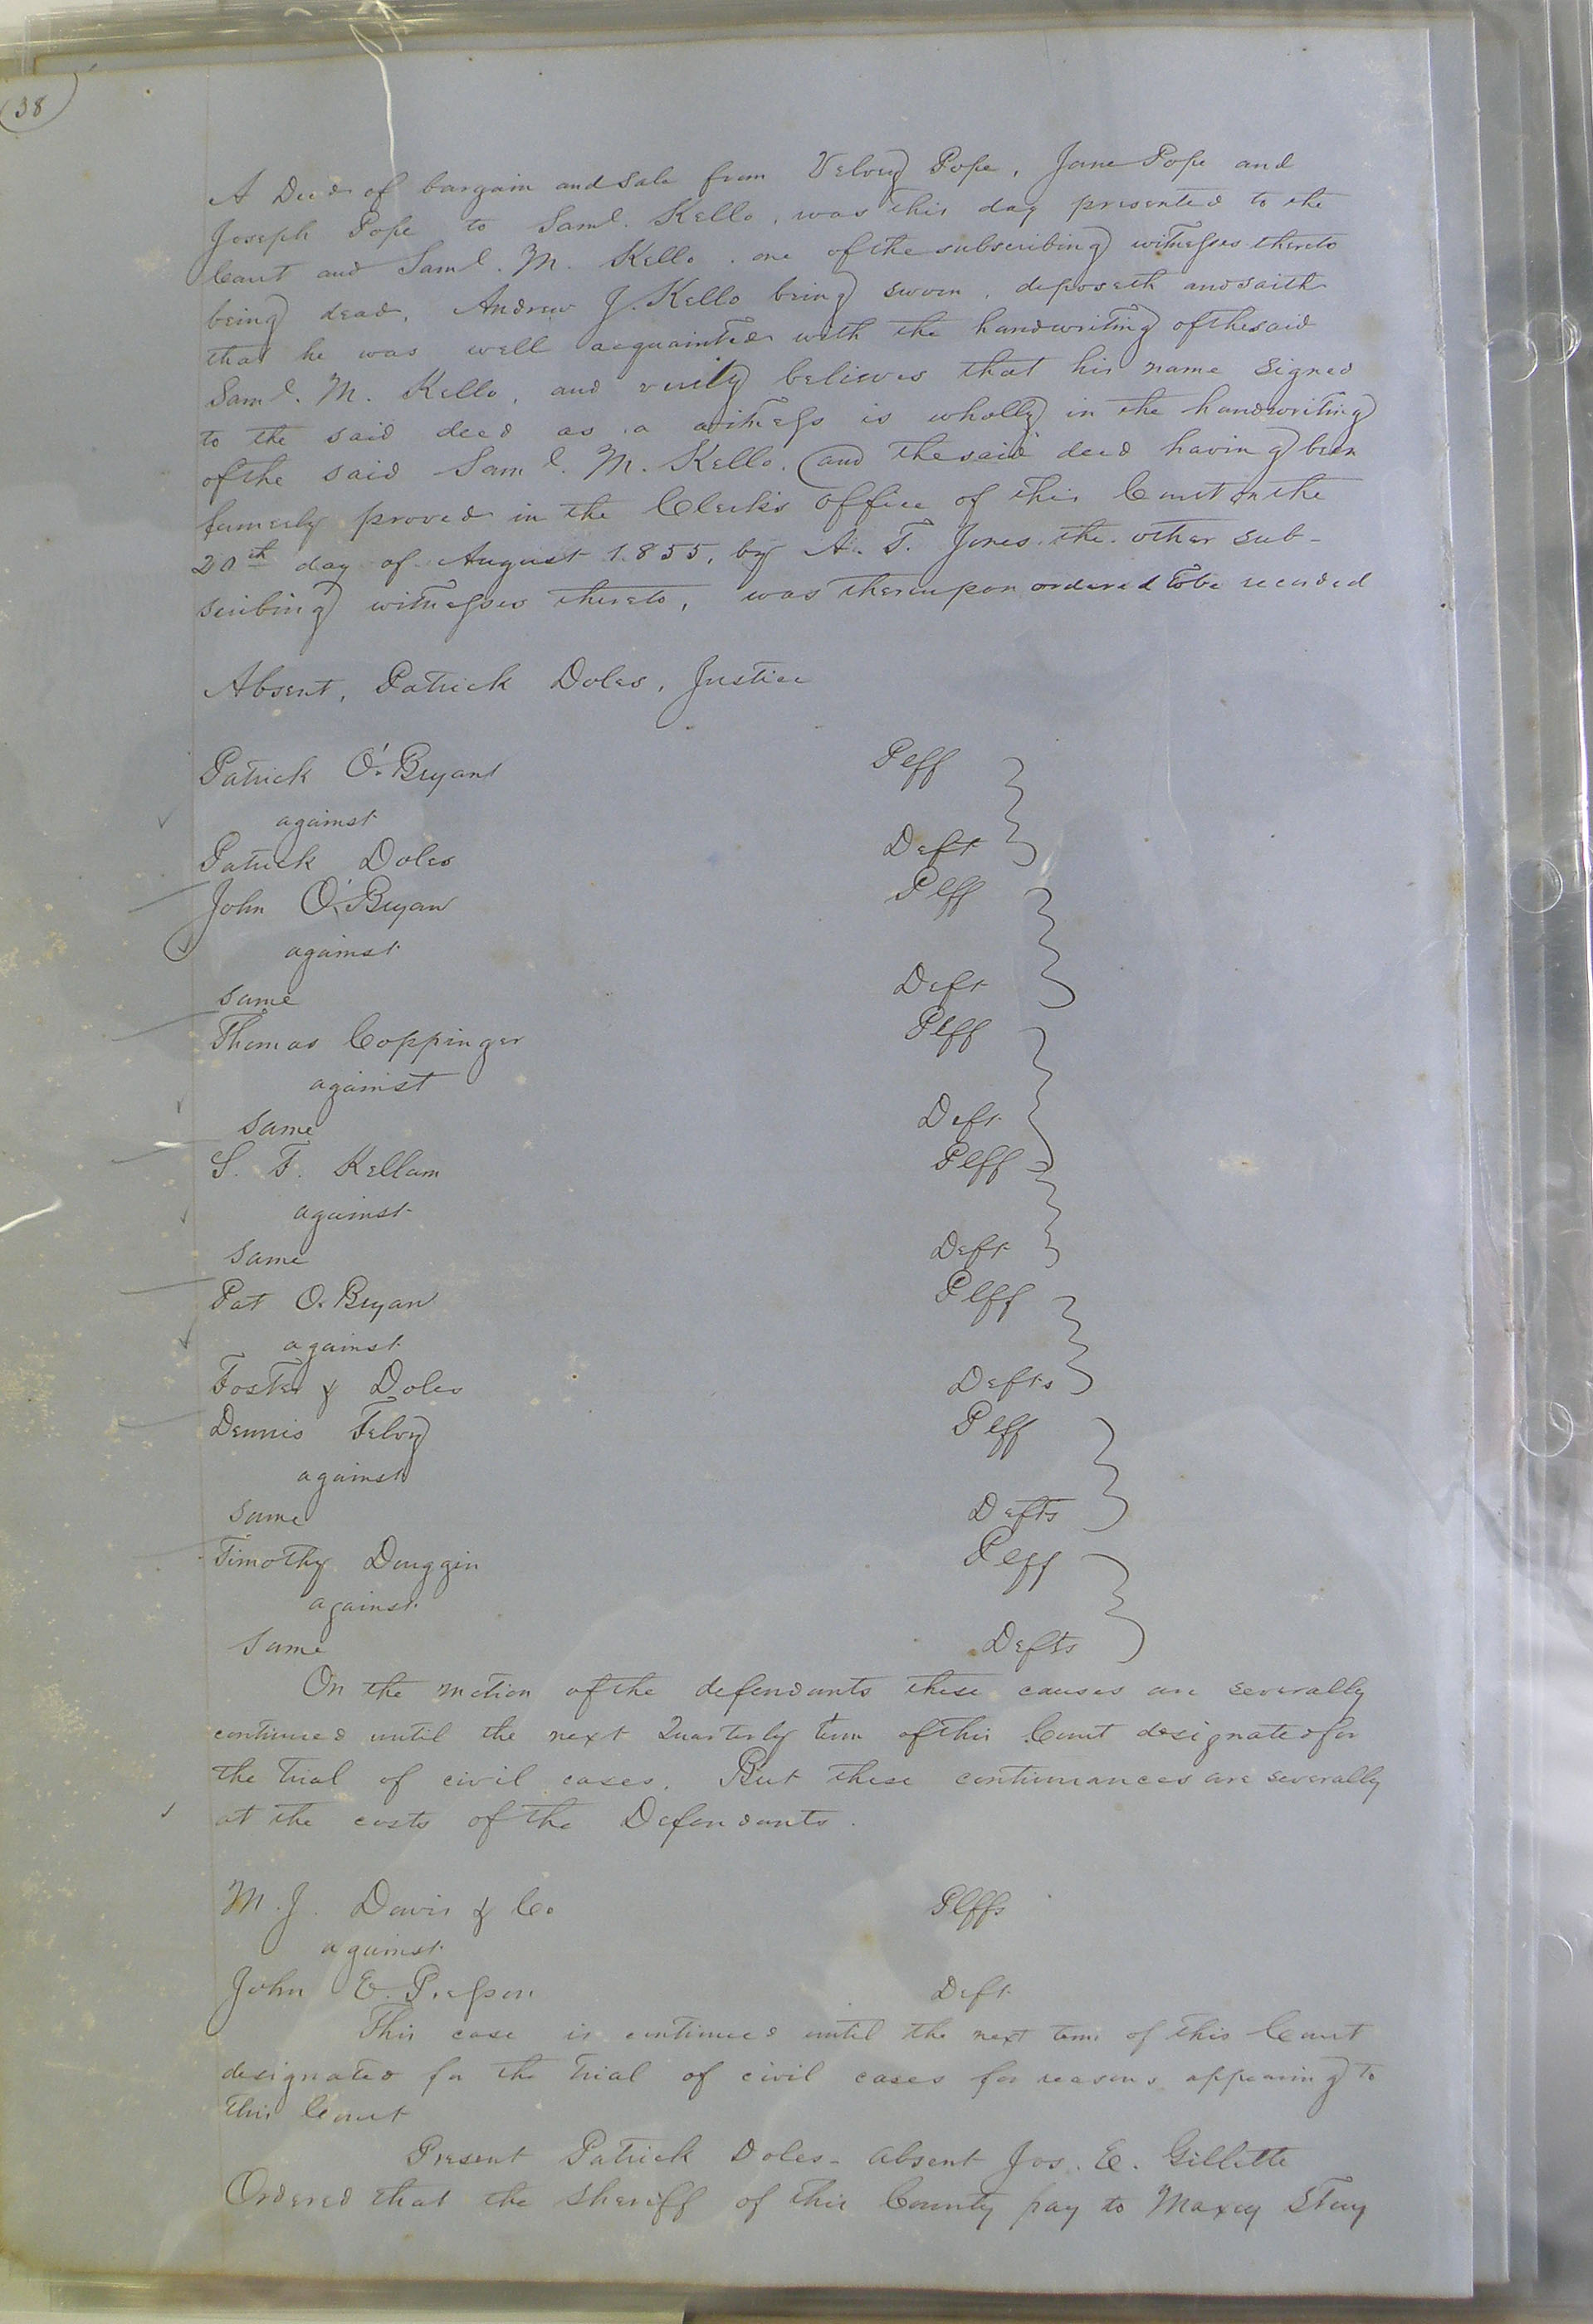 38
A Deed of bargain and Sale from Velvey Pope, Jane Pope and
Joseph Pope to Saml. Kello, was this day presented to the
Court and Saml. M. Kello, one of the subscribing witnesses thereto
being dead, Andrew J. Kello being sworn, deposeth and saith
that he was well acquainted with the handwriting of the said
Saml. M. Kello, and verily believes that his name signed
to the said deed as a witness is wholly in the handwriting
of the said Saml. M. Kello. and the said deed having been
formerly proved in the Clerk's Office of this Court on the
20th day of August 1855, by A. T. Jones the other sub-
scribing witnesses thereto, was thereupon ordered to be recorded
Absent, Patrick Doles, Justice
Patrick O'Bryant Plff
against
Patrick Doles Deft
John O'Bryan Plff
against
same Deft
Thomas Coppinger Plff
against
same Deft
S. F. Kellam Plff
against
same Deft
Pat O.Bryan Plff
against
Foster & Doles Defts
Dennis Felvy Plff
against
same Defts
Timothy Douggin Plff
against
same Defts
On the motion of the defendants these causes are severally
continued until the next Quarterly term of this Court designated for
the trial of civil cases. But these continuances are severally
at the costs of the Defendants.
M. J. Davis & Co Plffs
against
John E. Deft
This case is continued until the next term of this Court
designated for the trial of civil cases for reasons appearing to
this Court
Present Patrick Doles - absent Jos. E. Gillette
Ordered that the Sheriff of this County pay to Maxey